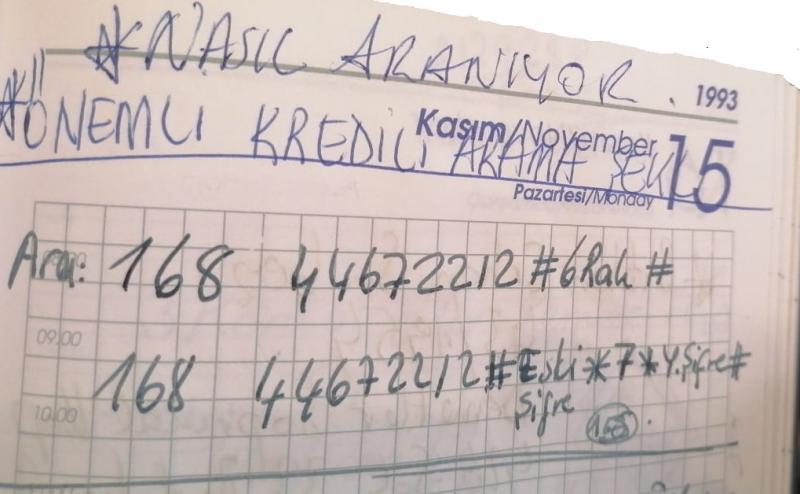 * NASIL ARANIYOR.
1993
* ÖNEMLİ KREDİLİ ARAMA ŞEK
Kasım/November 15
Pazartesi/Monday
Ara: 168 44672212 #6Rak #
09.00
168 44672212 #Eski*7*Y.Şifre#
Şifre
10.00